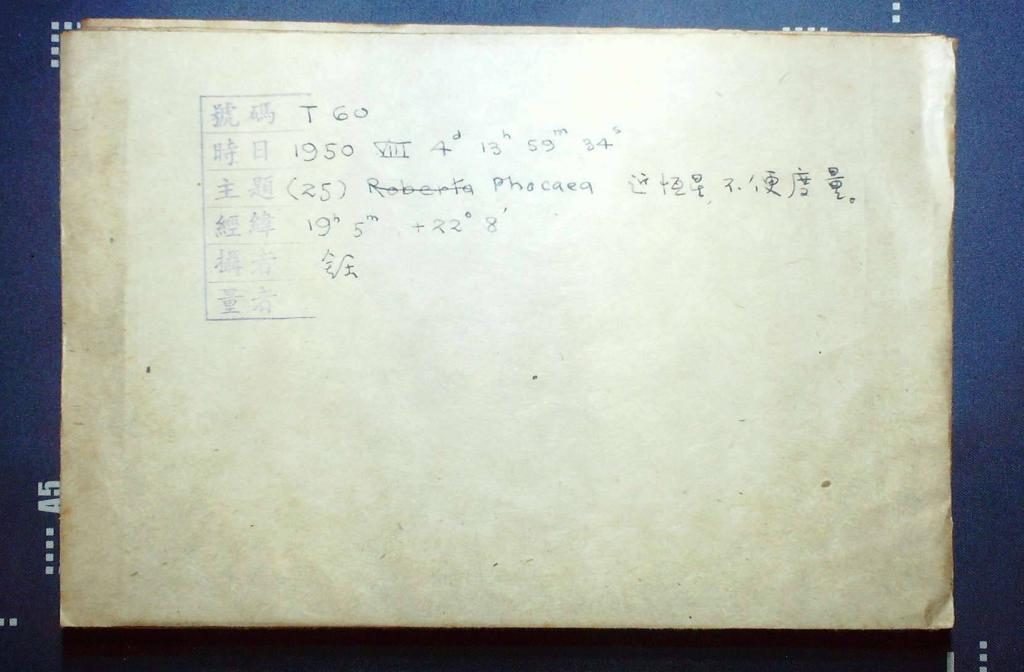 號碼 T 60
時日 1950 VIII 4d 13h 59m 34s
主題 (25) Roberta Phocaea 近恒星,不便度量。
經緯 19h 5m +22° 8'
攝者
量者
A5